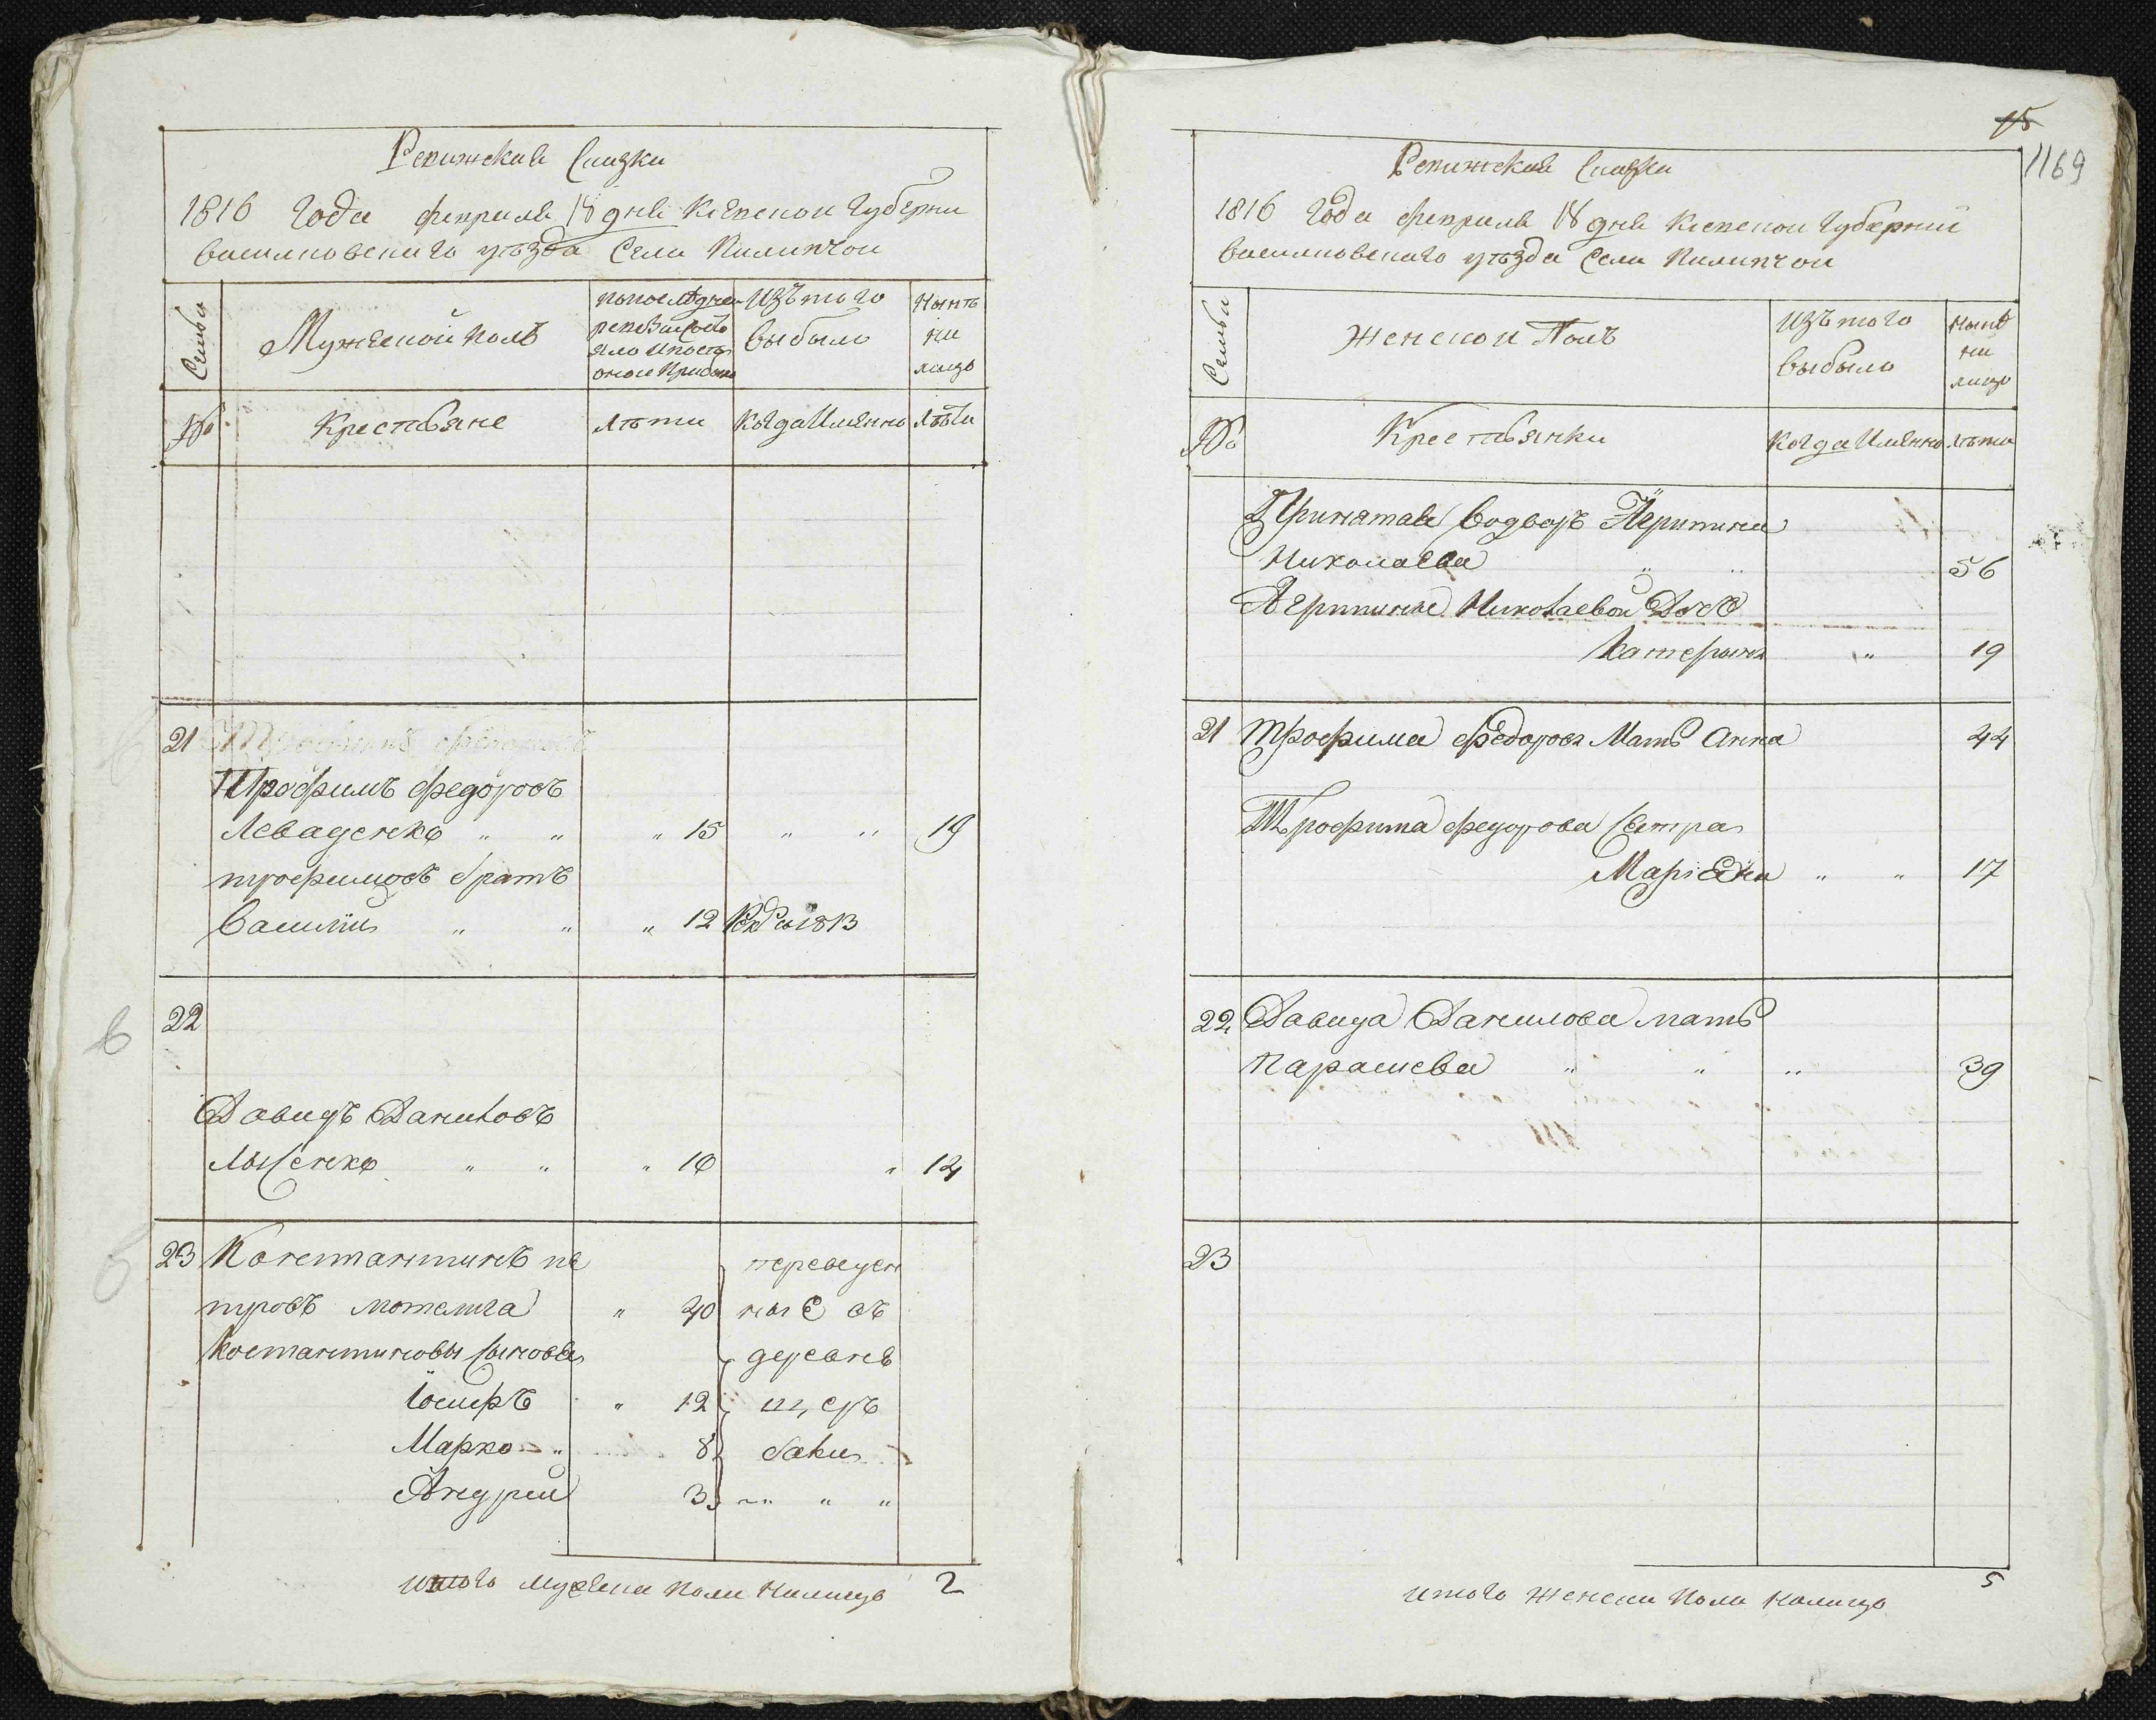 Ревижская Сказка
1816 года февраля 18 дня Киевской Губерни
васильковского уѣзда Села Пилипчои
Семьи
Мужеской полъ
попоследне
ревизии состо
яло и после
оной прибыло
Изъ того
выбыло
Нынѣ
на
лицо
№
Крестьяне
лѣта
когда Имянно
лѣта
21
Трофимъ федоровъ
Трофимъ федоровъ
Леваденко " " " 15 " " 19
трофимовъ братъ
василий " " " 12 1813
22
Давидъ Даниловъ
Лысенко " " " 10 " 14
23 Констянтинъ пе
тровъ мотелига " 40
Костантиновы сыновья
Іосифъ " 12
Марко " 8
Андрей 3
переведен
ные въ
деревне
щер
баки
" "
итого мужеска пола налицо 2
15
1169
Ревижская Сказка
1816 года февраля 18 дня Киевской Губерний
васильковского уѣзда Села Пилипчои
Семьи
Женской Полъ
Изъ того
выбыло
нынѣ
на
лицо
№
Крестьянки
когда Имянно
лѣта
Принятая водворъ Агрипина
Николаева " " 56
Агрипины Николаевой Дочь
Катерына " 19
21 Трофима федорова Мать Анна 44
Трофима федорова Сестра
Маріяна " " 17
22 Давида Данилова мать
Параскева " " " 39
23
итого женска пола налицо 5